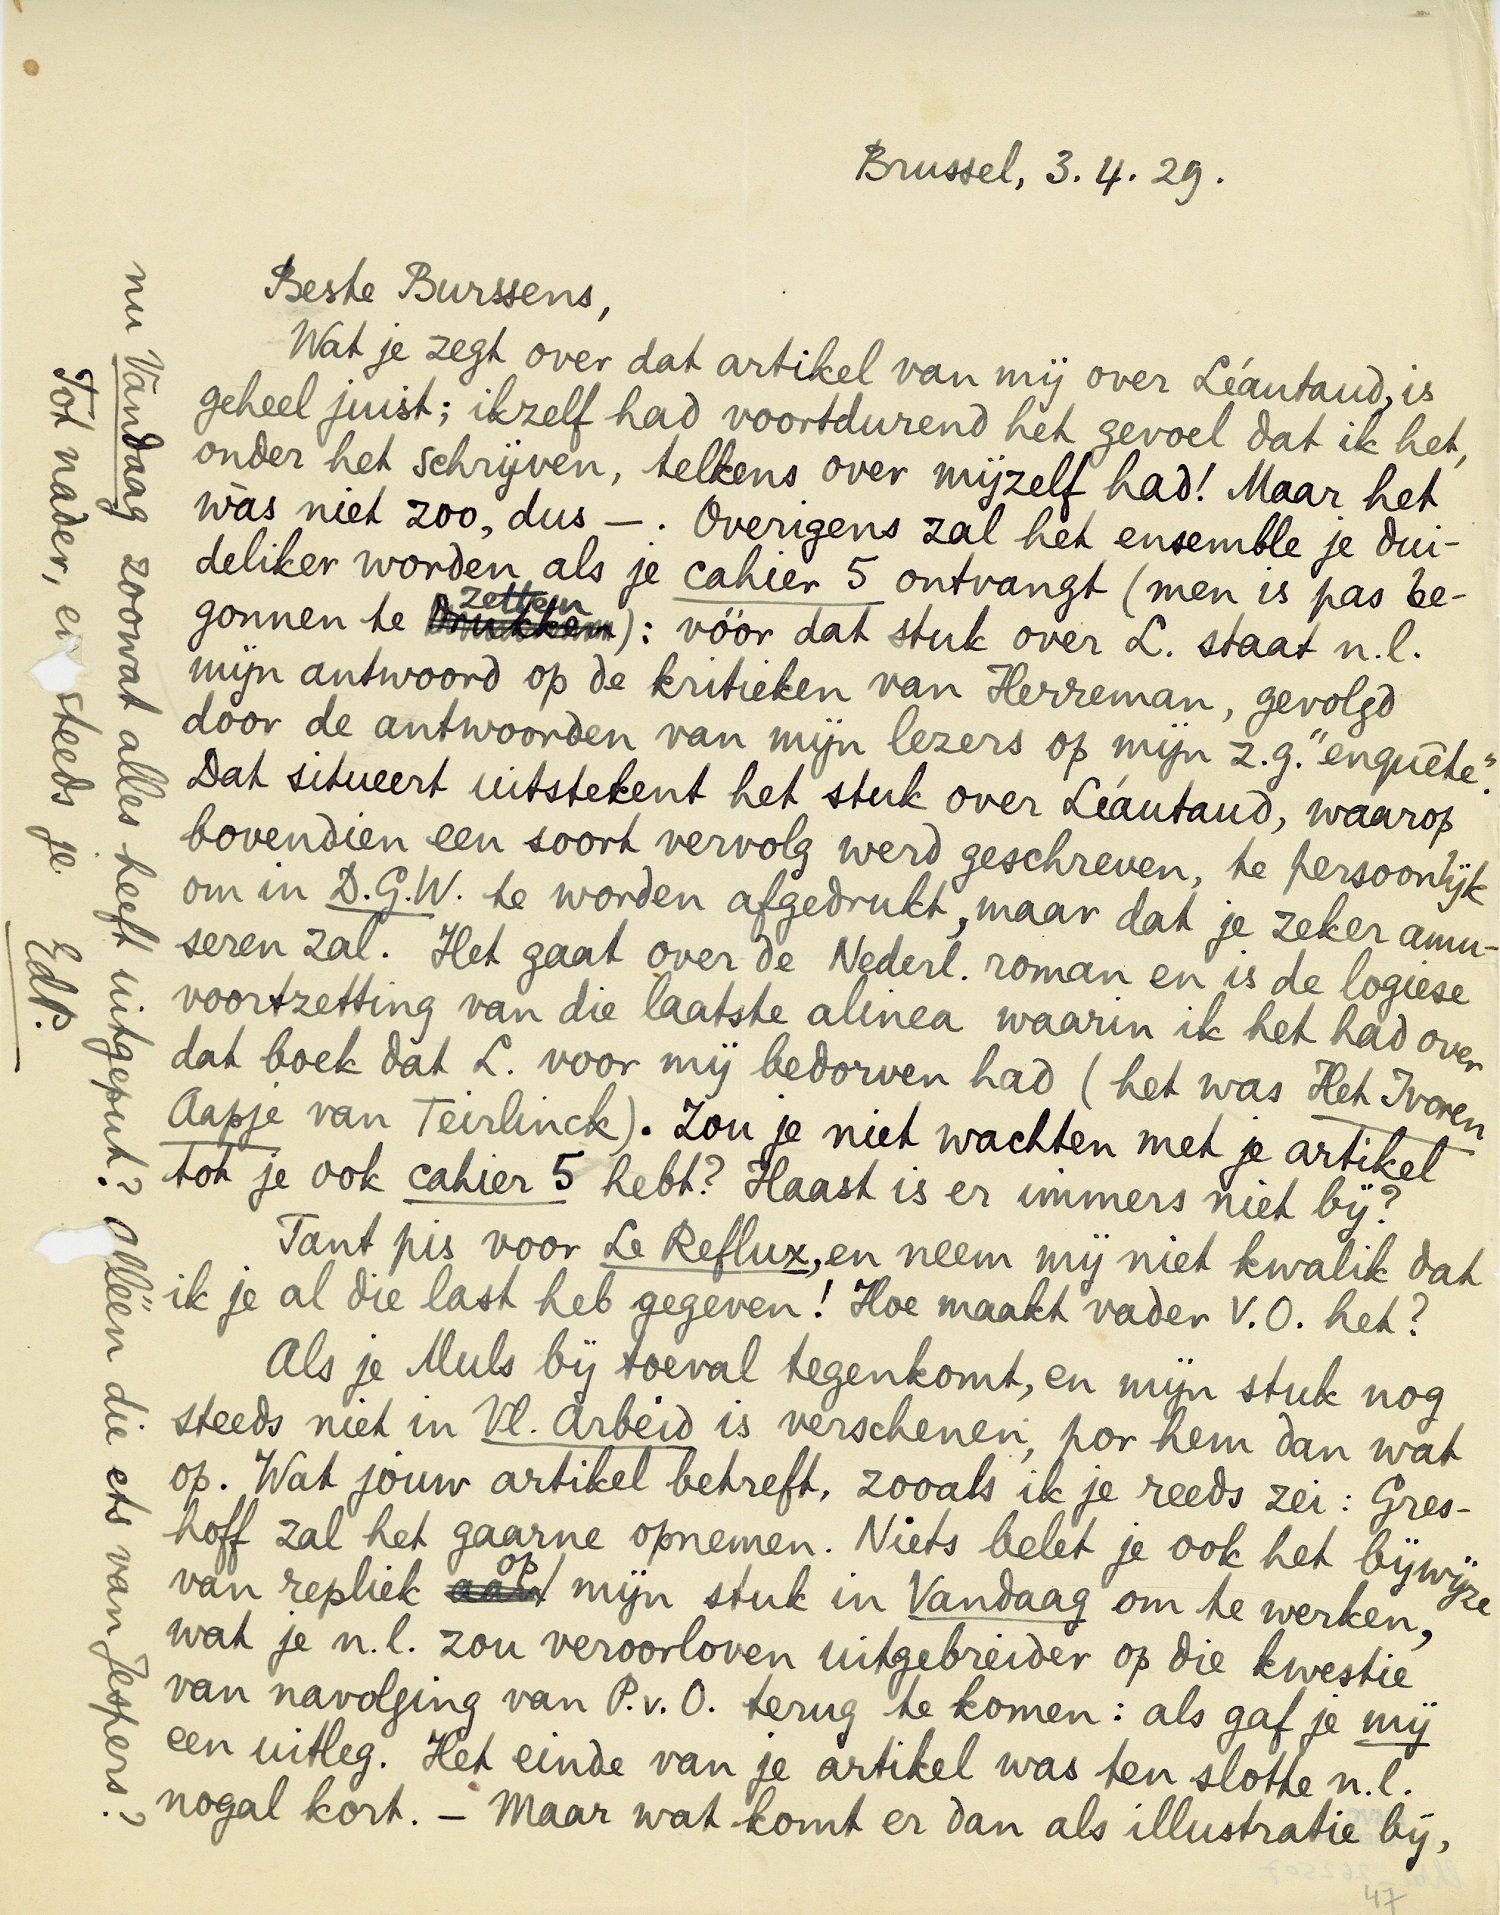 Brussel, 3.4.29.
Beste Burssens,
Wat je zegt over dat artikel van mij over Léautaud, is
geheel juist; ikzelf had voortdurend het gevoel dat ik het,
onder het schrijven, telkens over mijzelf had! Maar het
wàs niet zoo, dus —. Overigens zal het ensemble je dui-
deliker worden als je cahier 5 ontvangt (men is pas be-
gonnen te drukken zetten): vóór dat stuk over L. staat n.l.
mijn antwoord op de kritieken van Herreman, gevolgd
door de antwoorden van mijn lezers op mijn z.g. "enquête".
Dat situeert uitstekent het stuk over Léautaud, waarop
bovendien een soort vervolg werd geschreven, te persoonlijk
om in D.G.W. te worden afgedrukt, maar dat je zeker amu-
seren zal. Het gaat over de Nederl. roman en is de logiese
voortzetting van die laatste alinea waarin ik het had over
dat boek dat L. voor mij bedorven had (het was Het Ivoren
Aapje van Teirlinck). Zou je niet wachten met je artikel
tot je ook cahier 5 hebt? Haast is er immers niet bij?
Tant pis voor Le Reflux, en neem mij niet kwalik dat
ik je al die last heb gegeven! Hoe maakt vader V.O. het?
Als je Muls bij toeval tegenkomt, en mijn stuk nog
steeds niet in Vl. Arbeid is verschenen, por hem dan wat
op. Wat jouw artikel betreft, zooals ik je reeds zei: Gres-
hoff zal het gaarne opnemen. Niets belet je ook het bijwijze
van repliek aan op mijn stuk in Vandaag om te werken,
wat je n.l. zou veroorloven uitgebreider op die kwestie
van navolging van P.v.O. terug te komen: als gaf je mij
een uitleg. Het einde van je artikel was ten slotte n.l.
nogal kort. — Maar wat komt er dan als illustratie bij,
nu Vandaag zoowat alles heeft uitgeput? Alléén die ets van Jespers?
Tot nader, en steeds je
EdP.
47